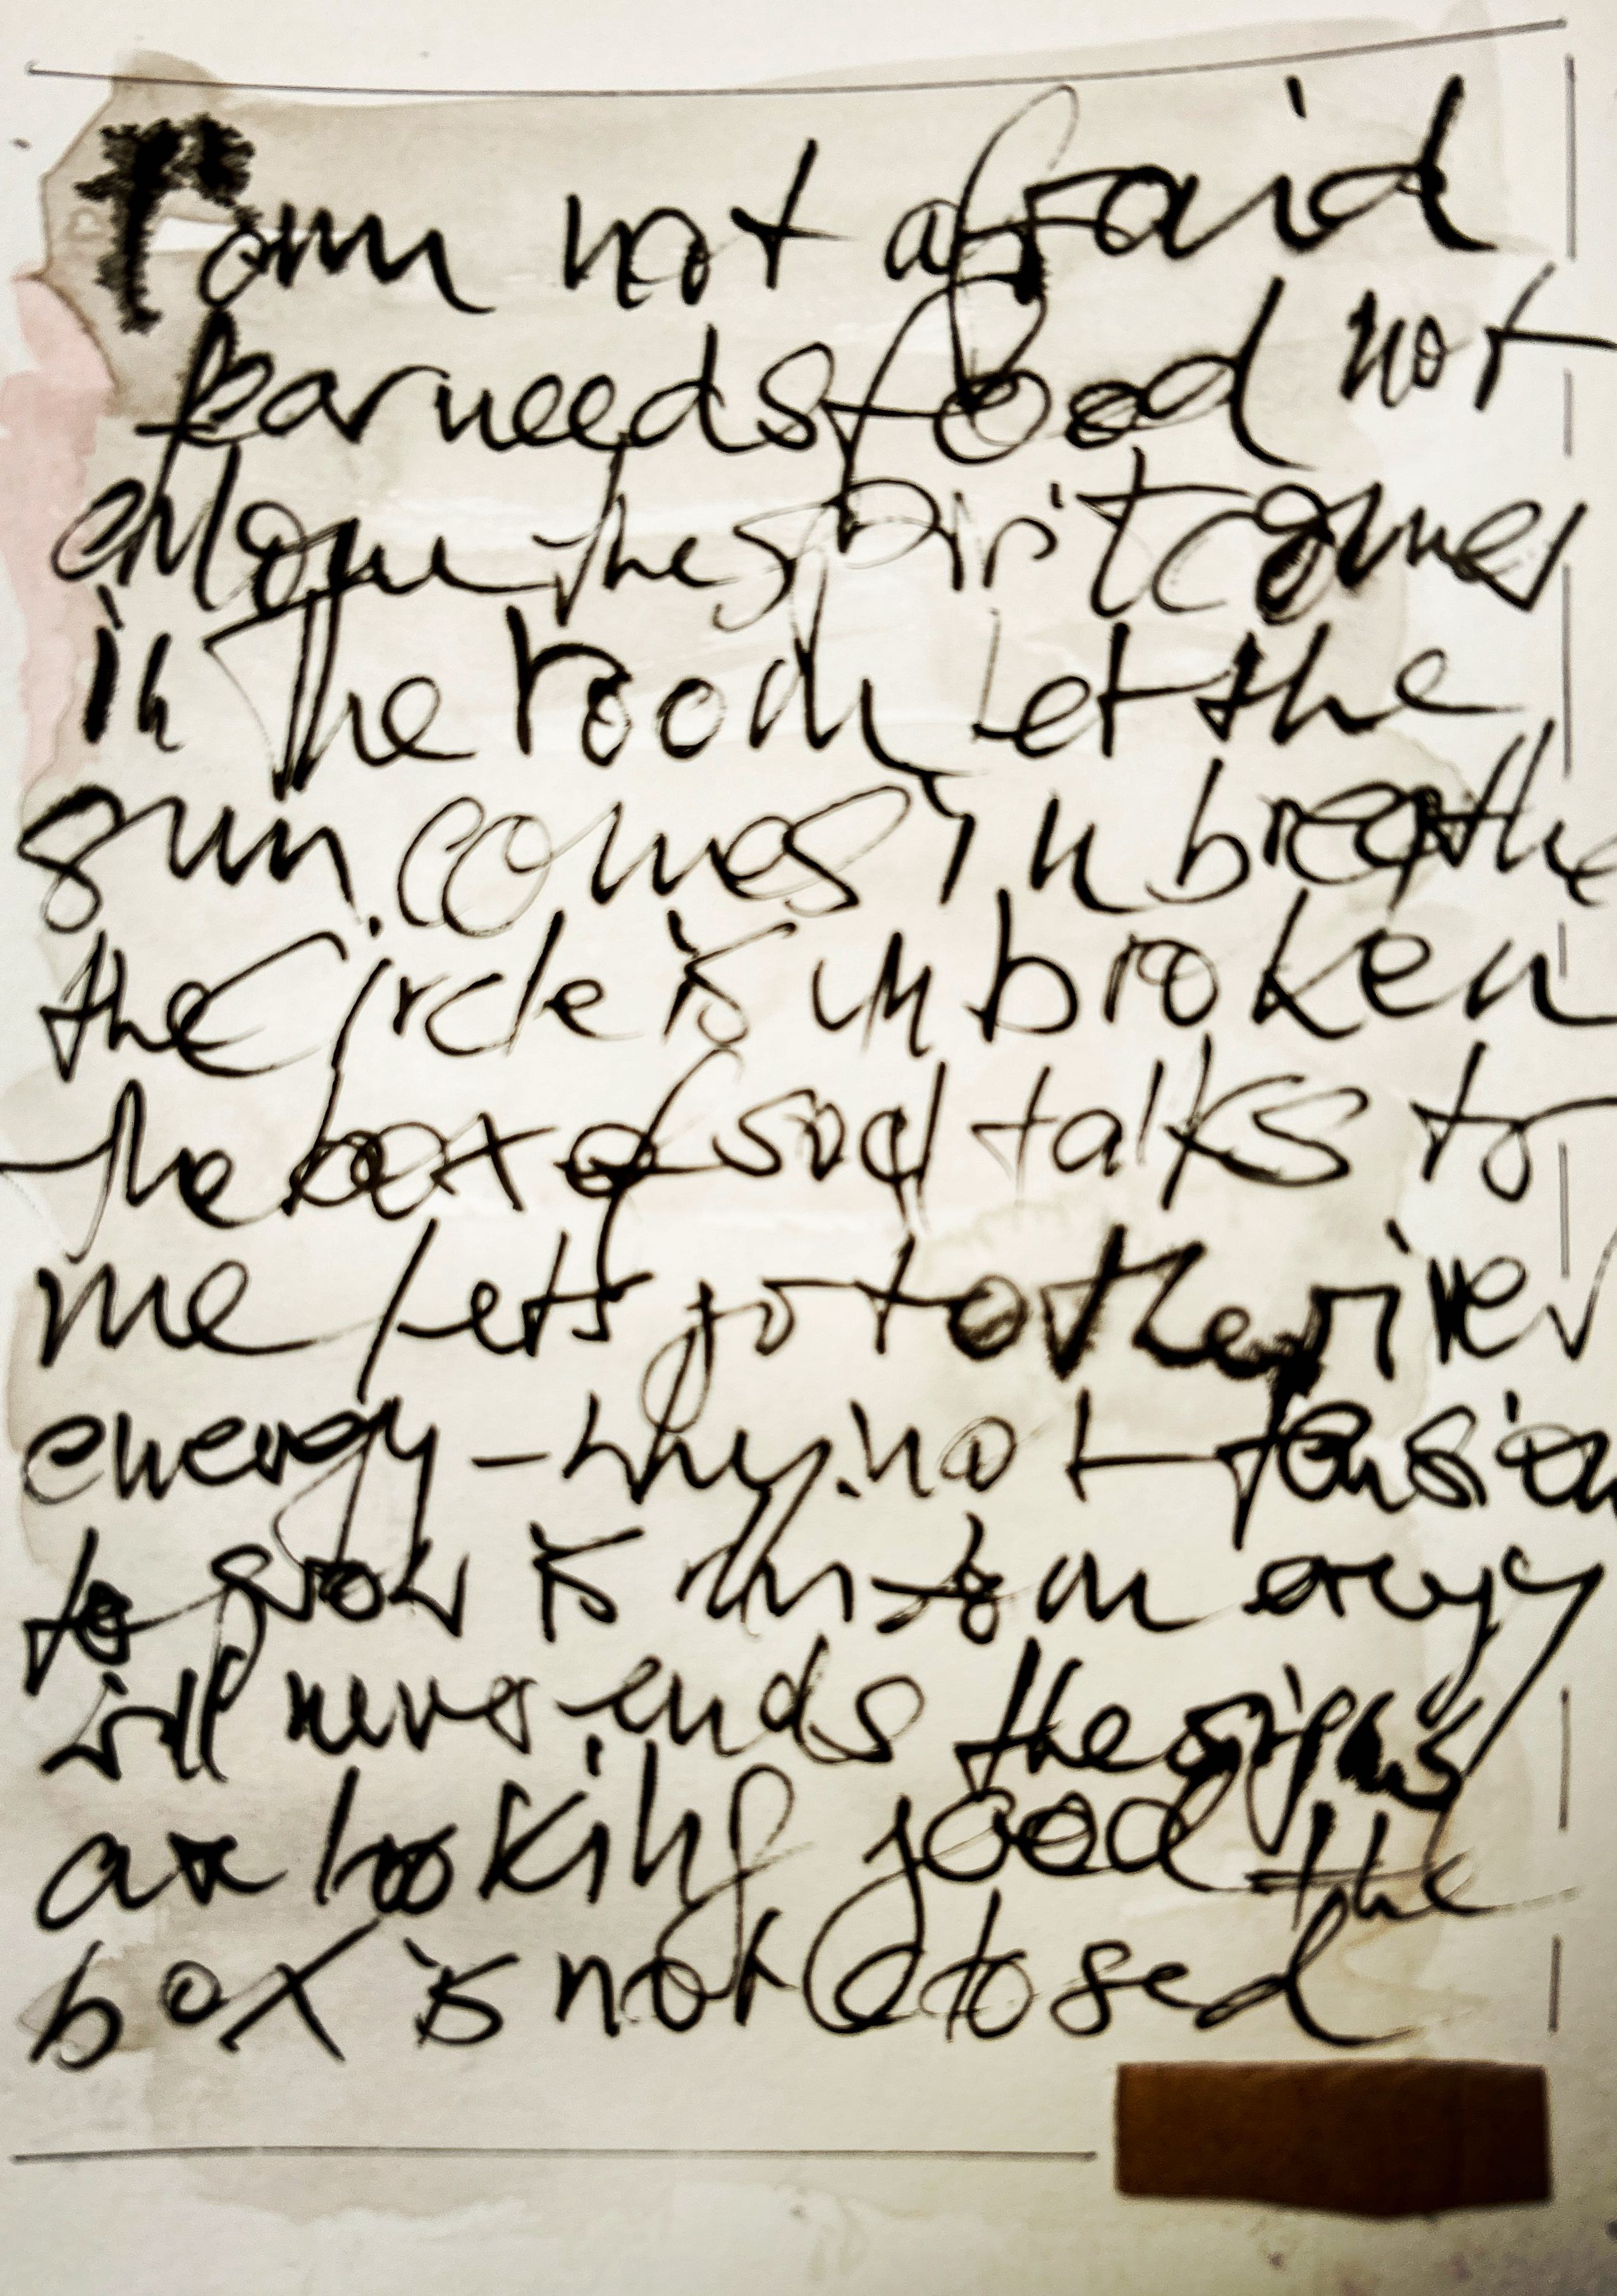 I am not afraid
fear needs food not
alone the spirit comes
in The room let the
sun comes in breathe
the Circle is unbroken
the box of soul talks to
me lets go to the river
energy - why not tension
to grow is energy
will never ends the signs
are looking good the
box is not closed